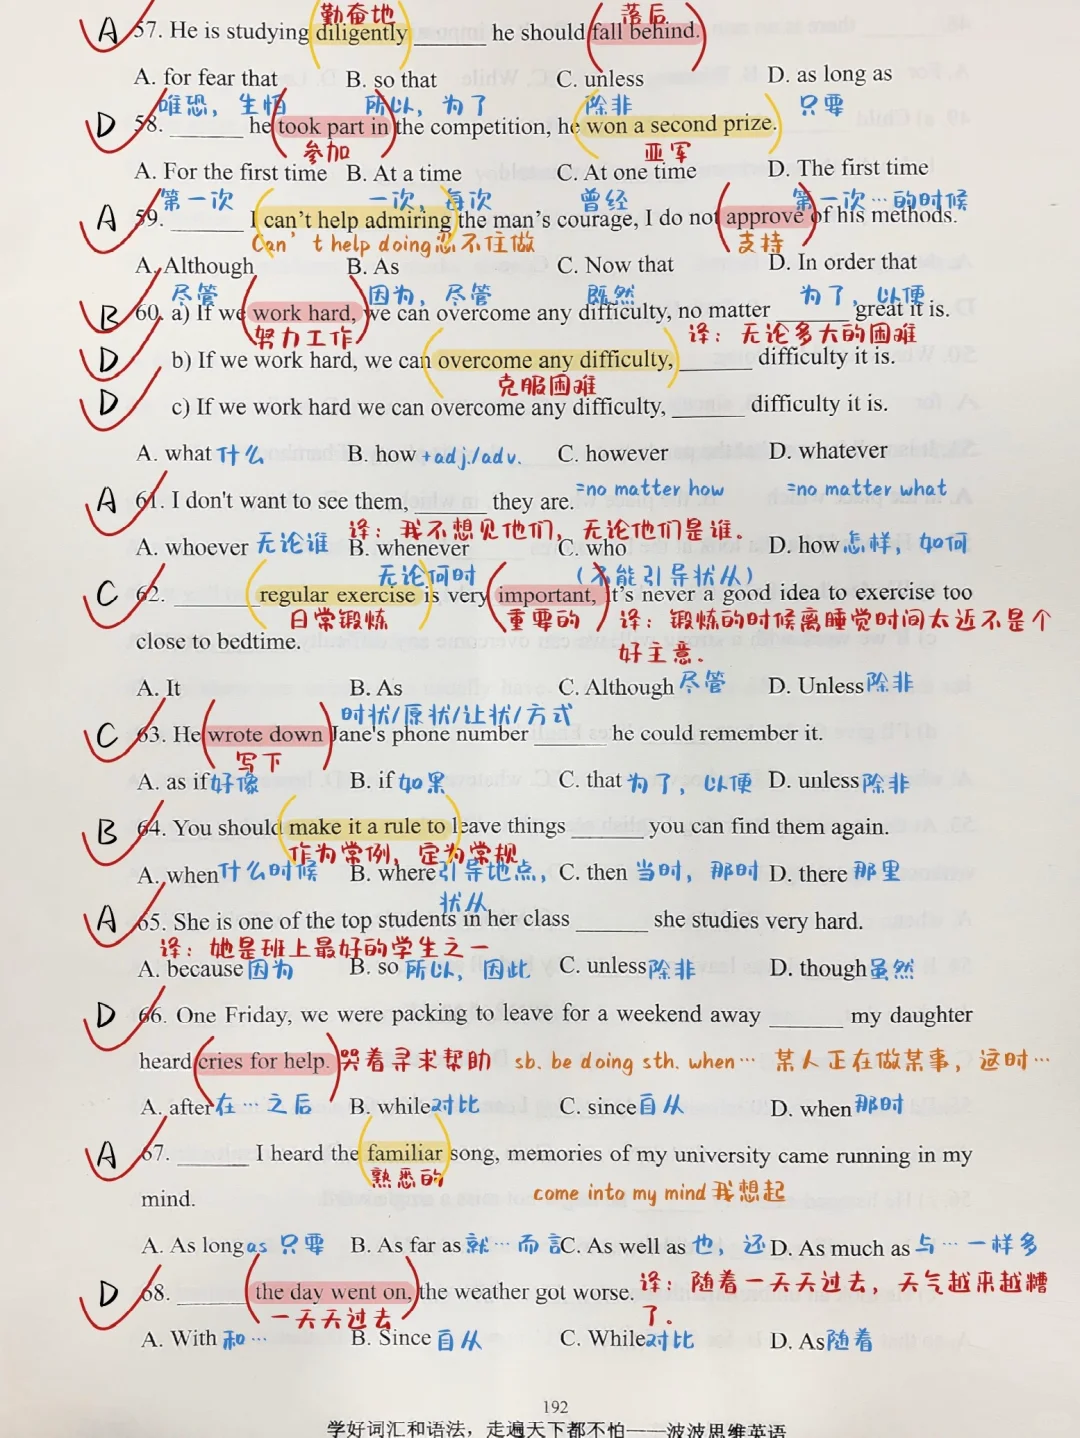 勤奋地 落后
A 57. He is studying diligently ______ he should fall behind.
A. for fear that B. so that C. unless D. as long as
唯恐，生怕 所以，为了 除非 只要
D 58. ______ he took part in the competition, he won a second prize.
参加 亚军
A. For the first time B. At a time C. At one time D. The first time
第一次 一次，每次 曾经 第一次…的时候
A 59. ______ I can't help admiring the man's courage, I do not approve of his methods.
Can't help doing忍不住做 支持
A. Although B. As C. Now that D. In order that
尽管 因为，尽管 既然 为了，以便
B 60. a) If we work hard, we can overcome any difficulty, no matter ______ great it is.
努力工作 译：无论多大的困难
D b) If we work hard, we can overcome any difficulty, ______ difficulty it is.
克服困难
D c) If we work hard we can overcome any difficulty, ______ difficulty it is.
A. what 什么 B. how +adj./adv. C. however D. whatever
=no matter how =no matter what
A 61. I don't want to see them, ______ they are.
译：我不想见他们，无论他们是谁。
A. whoever 无论谁 B. whenever C. who D. how怎样，如何
无论何时 （不能引导状从）
C 62. ______ regular exercise is very important, it's never a good idea to exercise too
日常锻炼 重要的 译：锻炼的时候离睡觉时间太近不是个
close to bedtime.
好主意.
A. It B. As C. Although 尽管 D. Unless除非
时状/原状/让状/方式
C 63. He wrote down Jane's phone number ______ he could remember it.
写下
A. as if好像 B. if 如果 C. that 为了，以便 D. unless除非
B 64. You should make it a rule to leave things ______ you can find them again.
作为常例，定为常规
A. when什么时候 B. where引导地点， C. then 当时，那时 D. there 那里
状从
A 65. She is one of the top students in her class ______ she studies very hard.
译：她是班上最好的学生之一
A. because因为 B. so 所以，因此 C. unless除非 D. though虽然
D 66. One Friday, we were packing to leave for a weekend away ______ my daughter
heard cries for help. 哭着寻求帮助 sb. be doing sth. when… 某人正在做某事，这时…
A. after在…之后 B. while对比 C. since自从 D. when那时
A 67. ______ I heard the familiar song, memories of my university came running in my
熟悉的 come into my mind 我想起
mind.
A. As long as 只要 B. As far as 就…而言 C. As well as 也，还 D. As much as 与…一样多
D 68. ______ the day went on, the weather got worse. 译：随着一天天过去，天气越来越糟
一天天过去 了.
A. With 和… B. Since 自从 C. While对比 D. As随着
192
学好词汇和语法，走遍天下都不怕——波波思维英语